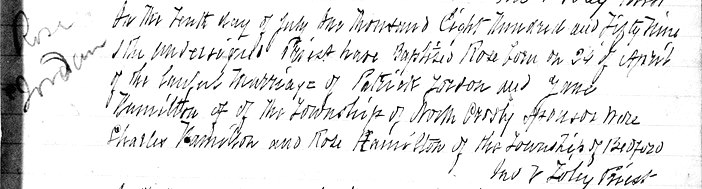 Rose
Jordan
On the Tenth day of July One Thousand Eight Hundred and Fifty Nine
I the undersigned Priest have Baptized Rose born on 24 of April
of the Lawful Marriage of Patrick Jordon and Jane
Hamilton of of the Township of North Crosby Sponsors were
Charles Hamilton and Rose Hamilton of the Township of Bedford
Jno V Foley Priest